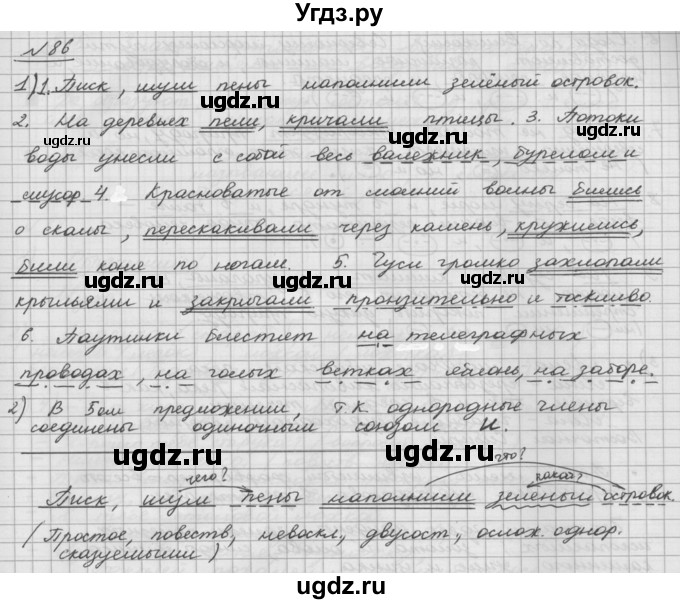 Угдз.ру
№86
1) 1. Писк, шум пены наполнили зелёный островок.
2. На деревьях пели, кричали птицы. 3. Потоки
воды унесли с собой весь валежник, бурелом и
мусор 4. Красноватые от молний волны бились
о скалы, перескакивали через камень, кружились,
били коне по ногам. 5. Гуси громко захлопали
крыльями и закричали пронзительно и тоскливо.
6. Паутинки блестят на телеграфных
проводах, на голых ветках яблонь, на заборе.
2) В 5ом предложении, т.к. однородные члены
соединены одиночным союзом и.
чего? что? какой?
Писк, шум пены наполнили зелёный островок.
(Простое, повеств, невоскл., двусост., ослож. однор.
сказуемыми)
ugdz.ru
ugdz.ru
ugdz.ru
ugdz.ru
ugdz.ru
ugdz.ru
ugdz.ru
ugdz.ru
ugdz.ru
ugdz.ru
ugdz.ru
ugdz.ru
ugdz.ru
ugdz.ru